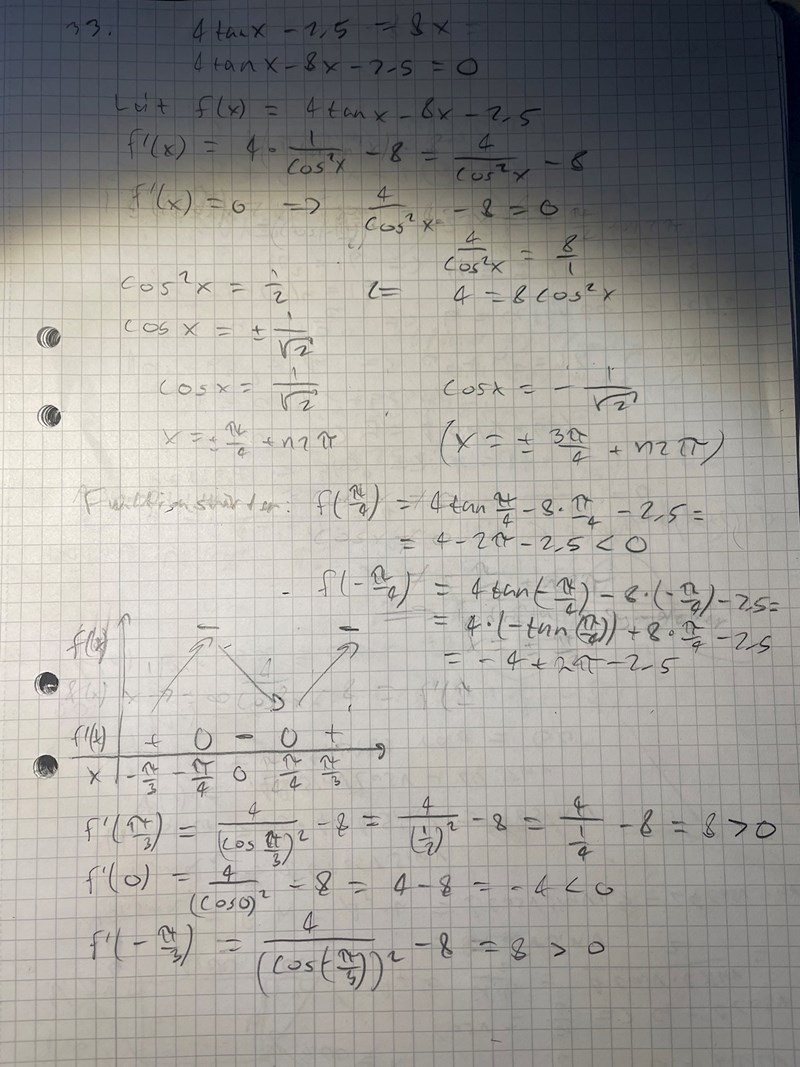 33. 4tanx - 2,5 = 8x
4tanx - 8x - 2,5 = 0
Låt f(x) = 4tanx - 8x - 2,5
f'(x) = 4 · 1/cos²x - 8 = 4/cos²x - 8
f'(x) = 0 => 4/cos²x - 8 = 0
4/cos²x = 8/1
cos²x = 1/2 <= 4 = 8cos²x
cosx = ± 1/√2
cosx = 1/√2 cosx = - 1/√2
x = ± π/4 + n2π (x = ± 3π/4 + n2π)
f(π/4) = 4tan π/4 - 8 · π/4 - 2,5 =
= 4 - 2π - 2,5 < 0
- f(-π/4) = 4tan(-π/4) - 8 · (-π/4) - 2,5 =
= 4 · (-tan(π/4)) + 8 · π/4 - 2,5
= - 4 + 2π - 2,5
f(x) - -
f'(x) + 0 - 0 +
x -π/3 -π/4 0 π/4 π/3
f'(π/3) = 4/(cos π/3)² - 8 = 4/(1/2)² - 8 = 4/(1/4) - 8 = 8 > 0
f'(0) = 4/(cos0)² - 8 = 4 - 8 = -4 < 0
f'(-π/3) = 4/(cos(-π/3))² - 8 = 8 > 0